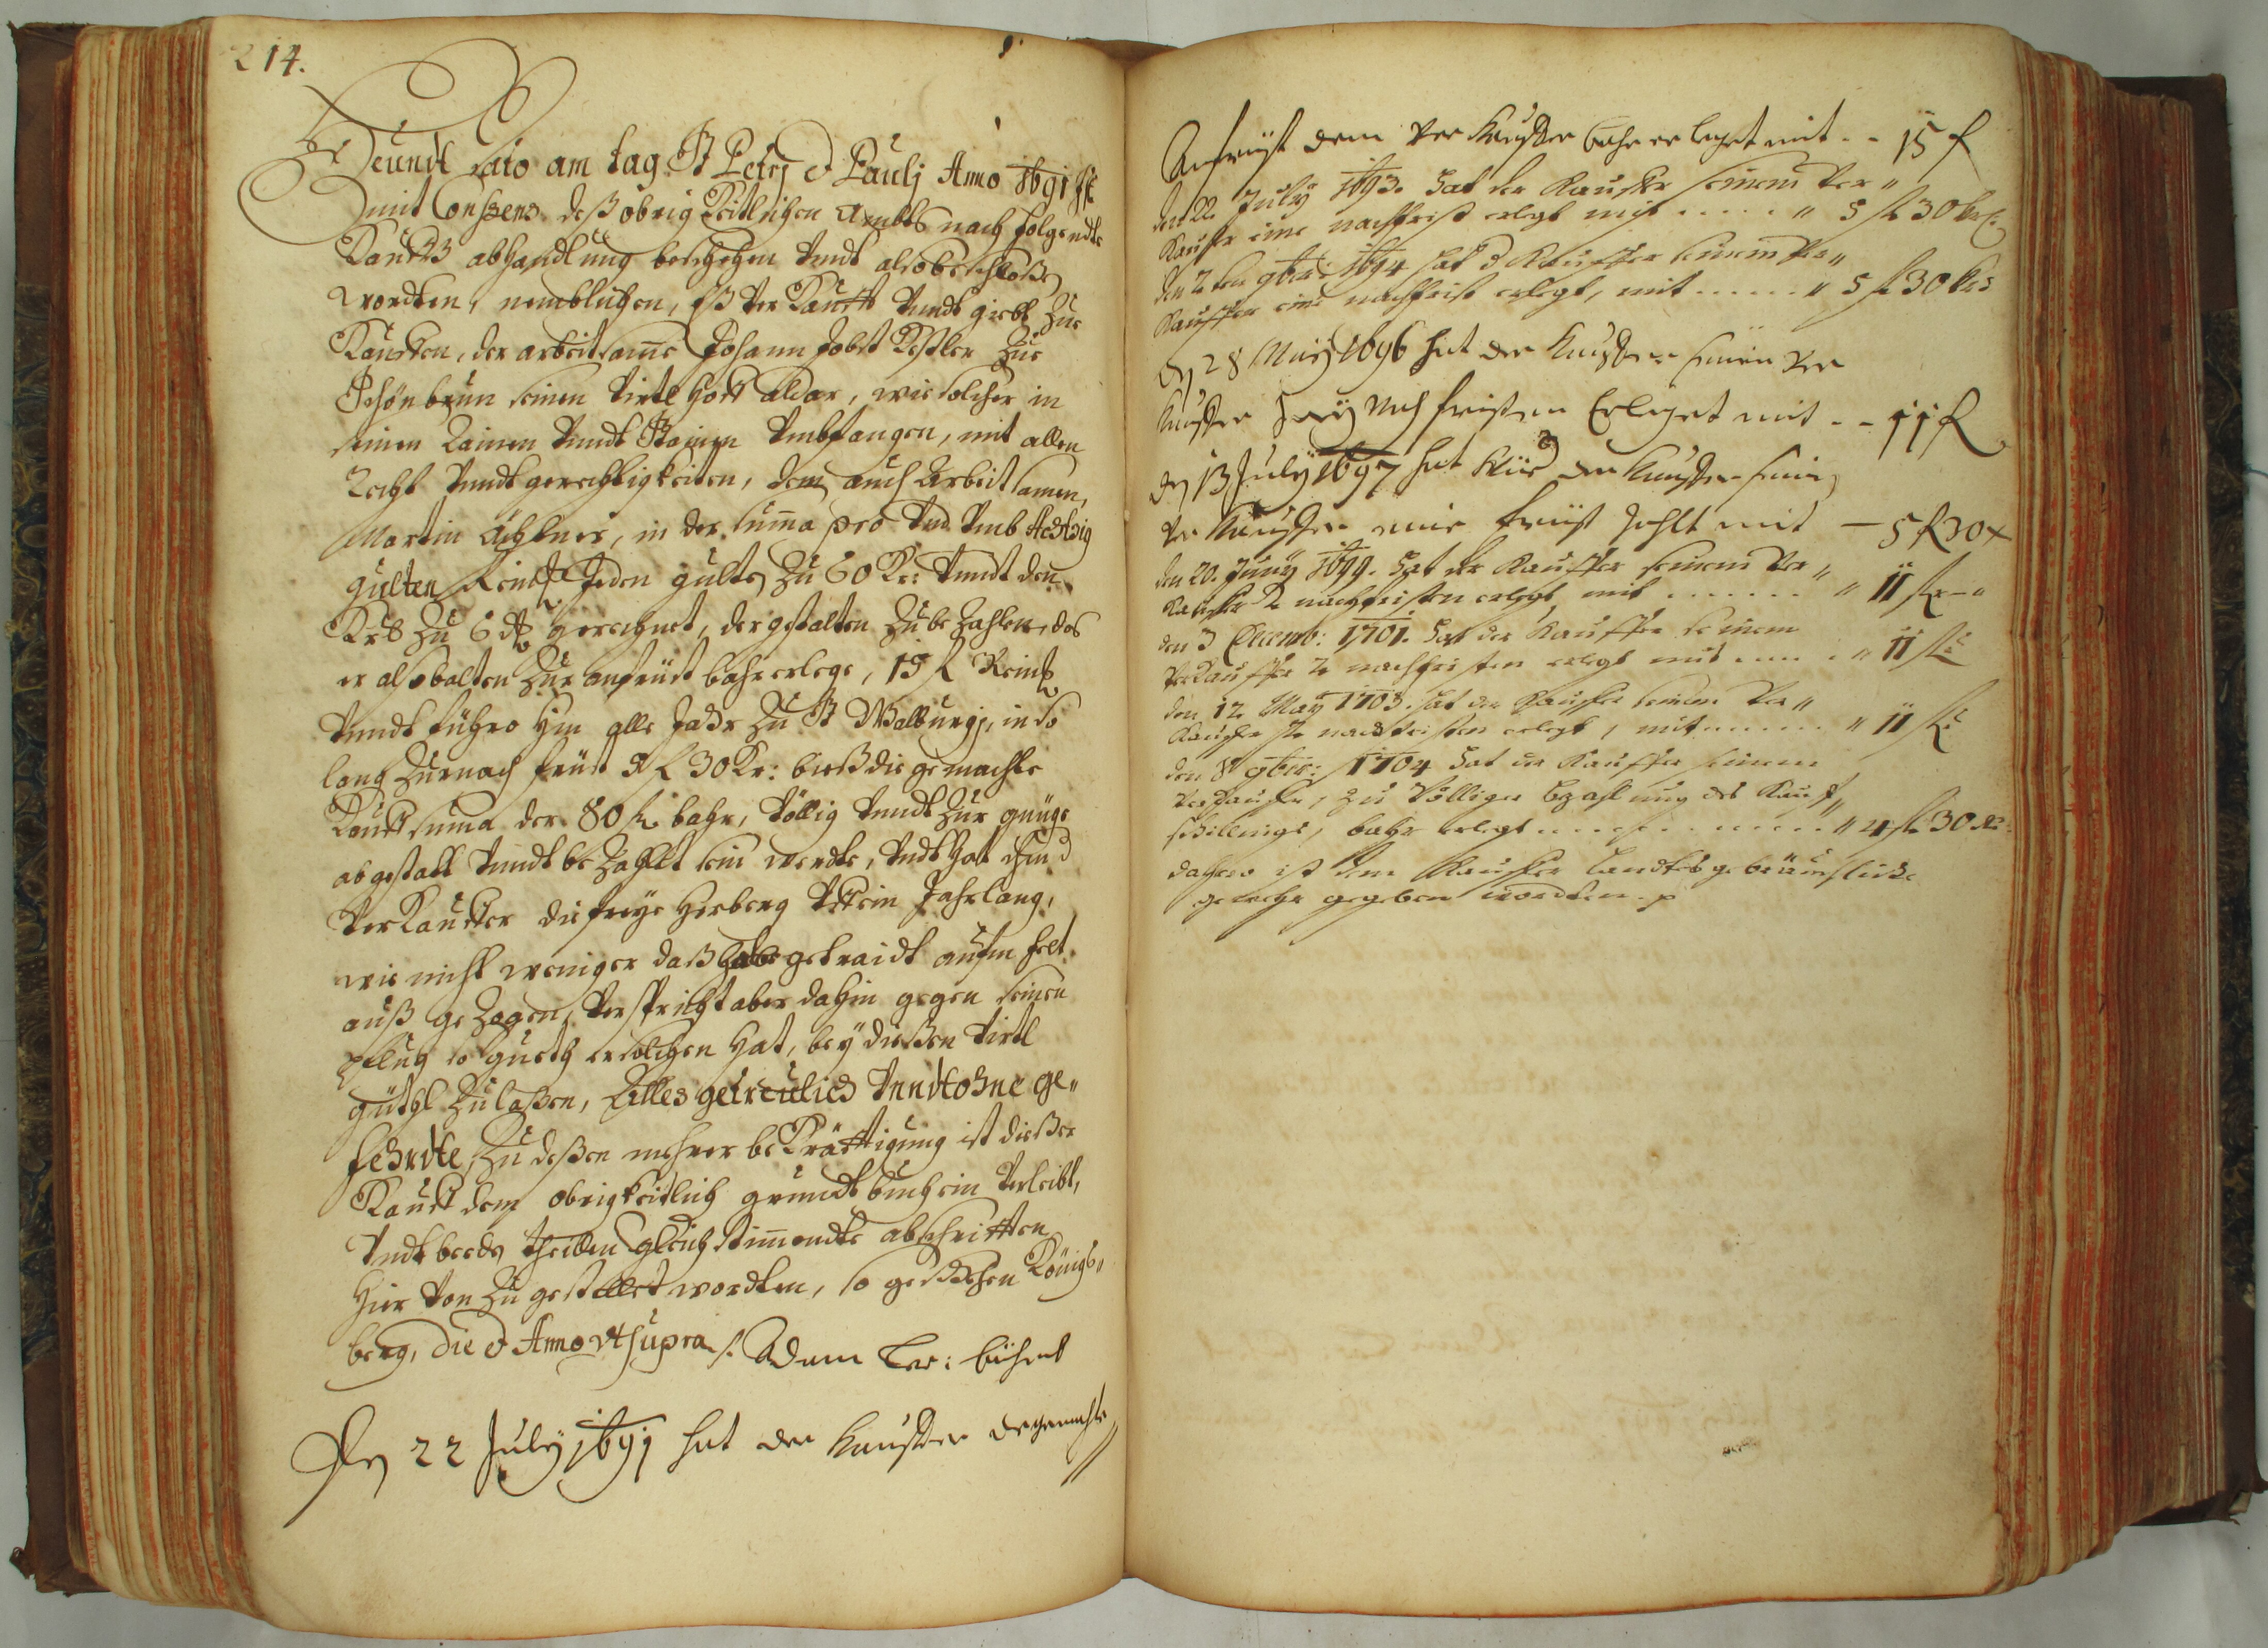 214.
Heundt dato am tag St Petrj et Paulj Anno 1691 ist
mit Conssens deß obrigkeitlichen Ambts nachfolgendte
Kauffs abhandlung beschehen vndt also beschloßen
wordten, nemblichen, eß verkaufft vndt giebt zue
Kauffen, der arbeitsame Johann Jobst Keßler zue
Schönbrun seinen virtl hoff aldar, wie solcher in
seinen Rainen vndt Stainen vmbfangen, mit allen
Recht vndt gerechtigkeiten, dem auch Arbeitsamen,
Martin, in der suma pro vnd vmb Achtzig
gulten Reinisch Jeden gulten zu 60 Kr: vundt den
Kr8 zu 6 d gerechnet, dergestalten zu bezahlen, das
er alsobalten zur anfrüst bahr erlege, 15 f Reinisch
vundt führo hin alle Jahr zu St Walburgj, in so
lang zur nachfrüst 5 f 30 Kr: bieß die gemachte
Kauffsuma der 80 f. bahr, völlig vundt zur gnüge
abgestatt vundt bezahlt sein werdte, vndt hat ihm d
verkauffer die freye Herberg vff ein Jahrlang,
wie nicht weniger daß halbe getraidt aufm felt
außgezogen, verspricht aber dahingegen seinen
pflug so gueth er solchen hat, bey dießen virtl
güthl zu laßen, Alles getreulich vnndt ohne ge„
fehrdte, zu deßen mehrer bekräfftigung ist dießer
Kauff dem obrigkeitlich grundtbuch ein verleibt,
vndt beeden theillen gleichstimmendte abschrifften
hier von zugestellet wordten, so geschehen Königs„
berg, die et Anno vt supra /: Adam Ler:
Den 22 July 1691 hat der Kauffer die gemachte
Anfrist dem verKauffer bahr erleget mit - - 15 f
den 22 July 1693. Hat der Kauffer seinem ver„
Kauffer eine nachfrist erlegt mit . . . . . „ 5 f 30 kr
den 2ten 9ber: 1694 hat d Kauffer seinem ver„
Kauffer eine nachfrist erlegt, mit . . . . . . „ 5 f 30 kr
den 28 May 1696 hat der Kauffer seinen ver
Kauffer zwey nachfristen Erleget mit - - 11 f
den 13 July 1697 hat der Kauffer seinen
verKauffer eine frist zahlt mit — 5 f 30 x
den 20. Juny 1699. Hat der Kauffer seinem ver„
Kauffer 2 nachfristen erlegt mit . . . . . . . „ 11 f —
den 3 Decemb: 1701. Hat der Kauffer seinem
verkauffer 2 nachfristen erlegt mit . . . . . „ 11 f
den 12 May 1703. hat der Kauffer seinem ver„
Kauffer 2 nachfristen erlegt, mit . . . . . . „ 11 f
den 8 9ber: 1704 Hat der Kauffer seinem
verkauffer, zu völliger bezahlung des Kauf„
schillings, bahr erlegt . . . . . . . . . . „ 4 f 30 kr
dahero ist dem Kauffer landtsgebräuchliche
gewehr gegeben wordten.